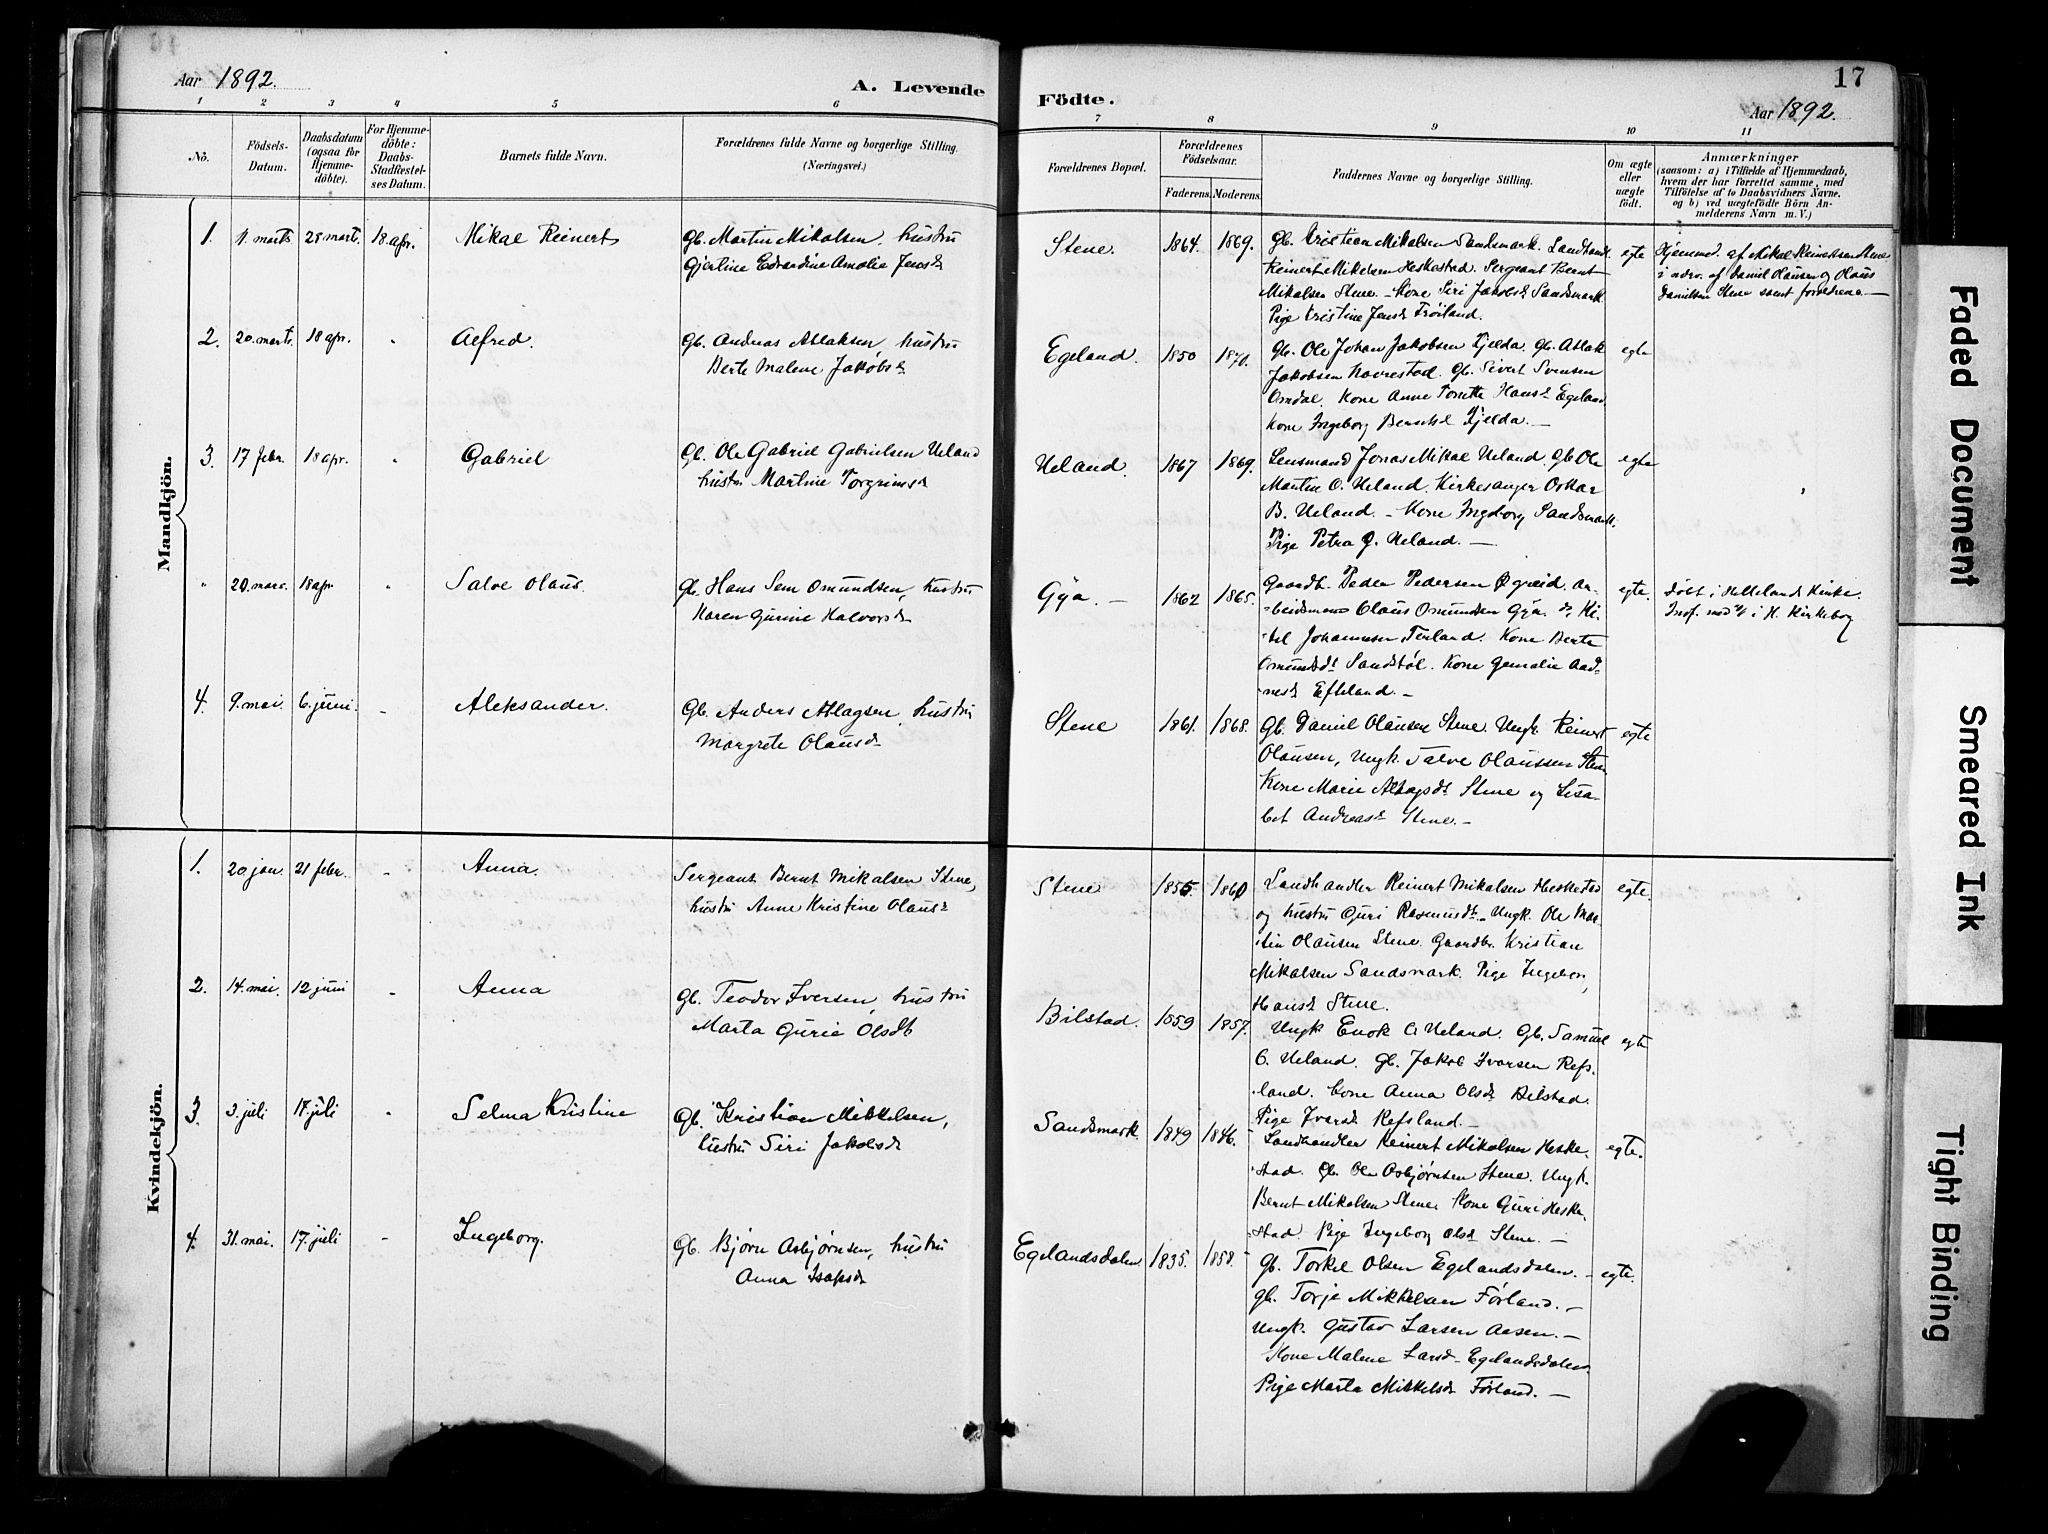 Aar 1892.
A. Levende
Födte.
17
Aar 1892.
1 2 3 4 5 6 7 8 9 10 11
No.
Födsels-
Datum.
Daabsdatum
(ogsaa for
Hjemme-
döbte).
For Hjemme-
döbte:
Daabs-
Stadfæstel-
ses Datum.
Barnets fulde Navn.
Forældrenes fulde Navne og borgerlige Stilling.
(Næringsvei.)
Forældrenes Bopæl.
Forældrenes
Födselsaar.
Faderens. Moderens.
Faddernes Navne og borgerlige Stilling.
Om ægte
eller
uægte
födt.
Anmærkninger
(saasom: a) i Tilfælde af Hjemmedaab,
hvem der har forrettet samme, med
Tilföielse af to Daabsvidners Navne,
og b) ved uægtefödte Börn An-
melderens Navn m. V.)
Mandkjön.
1. 11. marts 28 marts. 18. apr. Mikal Reinert
Gb. Martin Mikalsen, hustru
Gjertine Edvardine Amalie Jensd
Stene 1864. 1869.
Gb. Kristian Mikalsen Sandsmark. Landhandl.
Reinert Mikalsen Heskestad. Sergeant Bernt
Mikalsen Stene. – Kone Siri Jakobsd Sandsmark
Pige Kristine Jensd Frøiland.
egte
Hjemmed. af Mikal Reinertsen Stene
i nærv. af Daniel Olausen og Olaus
Danielsen Stene samt forældrene. –
2. 20. marts. 18 apr. " Alfred.
Gb. Andreas Atlaksen, hustru
Berte Malene Jakobsd
Egeland. 1850 1870.
Gb. Ole Johan Jakobsen Kjelda. Gb. Aslak
Jakobsen Navrestad. Gb. Sivert Svensen
Omdal. Kone Anne Torette Hansd Egeland
Kone Ingeborg Berntsd Kjelda. –
egte
3. 17 febr. 18 apr. " Gabriel
Gb. Ole Gabriel Gabrielsen Ueland
hustru Martine Torgrimsd
Ueland. 1867 1869.
Lensmand Jonas Mikal Ueland. Gb Ole
Martin O. Ueland. Kirkesanger Oskar
B. Ueland. – Kone Ingeborg Sandsmark.
Pige Petra G. Ueland. –
egte
" 20. mars. 18 apr " Salve Olaus.
Gb. Hans Sem Omundsen, hustru
Karen Gurine Halvorsd
Gya. – 1862 1865.
Gaardb. Peder Pedersen Øgreid. Ar-
beidsmand Olaus Omundsen Gya. do Ki-
tel Johannesen Terland. Kone Berte
Omundsdt Sandstøl. Kone Gemalie Aad-
nesd Efteland. –
egte.
Døbt i Hellelands Kirke.
Inf. med i H. Kirkebog
4. 9. mai. 6. juni " Aleksander.
Gb. Anders Atlagsen, hustru
Margrete Olausd
Stene 1861. 1868.
Gb. Daniel Olausen Stene. Ungk. Reinert
Olausen, Ungk. Salve Olaussen Stene
Kone Marie Atlagsdt Stene og Lisa-
bet Andreasd Stene. –
egte
Kvindekjön.
1. 20. jan. 21 febr. " Anna.
Sergeant Bernt Mikalsen Stene,
hustru Anne Kristine Olausd
Stene 1855 1860
Landhandler Reinert Mikalsen Heskestad
og hustru Guri Rasmusdt – Ungk. Ole Mar-
tin Olausen Stene. Gaardbr. Kristian
Mikalsen Sandsmark. Pige Ingeborg
Hansd Stene.
egte.
2. 14. mai. 12 juni " Anna
Gb. Teodor Iversen, hustru
Marta Gurie Olsdt
Bilstad. 1859 1857.
Ungk Enok C Ueland. Gb. Samuel
C. Ueland. Gb. Jakob Ivarsen Refs-
land. Kone Anna Olsd Bilstad.
Pige Ivarsd Refsland. –
egte
3. 3. juli 17. juli " Selma Kristine
Gb. Kristian Mikkelsen,
hustru Siri Jakobsd
Sandsmark. 1849 1846.
Landhandler Reinert Mikalsen Heske-
stad. Gb. Ole Asbjørnsen Stene. Ungk.
Bernt Mikalsen Stene. Kone Guri Heske-
stad. Pige Ingeborg Olsd Stene. –
egte.
4. 31. mai. 17. juli " Ingeborg.
Gb. Bjørn Asbjørnsen, hustru
Anna Isaksd
Egelandsdalen 1835. 1858.
Gb. Torkel Olsen Egelandsdalen. –
Gb. Torje Mikkelsen Førland. –
Ungk. Gustav Larsen Aasen. –
Kone Malene Larsd – Egelandsdalen.
Pige Marta Mikkelsd Førland. –
egte.
Faded Document
Smeared Ink
Tight Binding